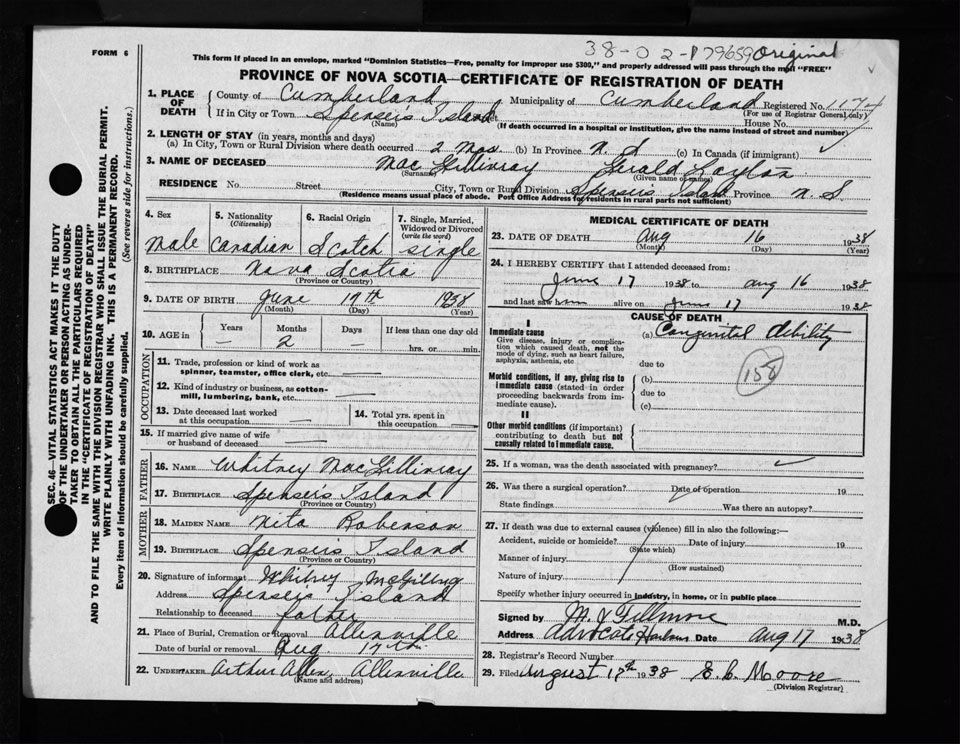 38-0 2-179659 Original
FORM 6
This form if placed in an envelope, marked "Dominion Statistics—Free, penalty for improper use $300," and properly addressed will pass through the mail "FREE"
PROVINCE OF NOVA SCOTIA—CERTIFICATE OF REGISTRATION OF DEATH
1. PLACE OF DEATH
County of Cumberland Municipality of Cumberland Registered No. 1174
(For use of Registrar General only)
If in City or Town Spenser's Island Street House No.
(Name) (If death occurred in a hospital or institution, give the name instead of street and number)
2. LENGTH OF STAY (in years, months and days)
(a) In City, Town or Rural Division where death occurred 2 Mos. (b) In Province N. S (c) In Canada (if immigrant)
3. NAME OF DECEASED MacGillivray Gerald Layton
(Surname) (Given name or names)
RESIDENCE No. Street City, Town or Rural Division Spenser's Island Province N. S.
(Residence means usual place of abode. Post Office Address for residents in rural parts not sufficient)
4. Sex
Male
5. Nationality
(Citizenship)
Canadian
6. Racial Origin
Scotch
7. Single, Married, Widowed or Divorced
(write the word)
Single
8. BIRTHPLACE Nova Scotia
(Province or Country)
9. DATE OF BIRTH June 17th 1938
(Month) (Day) (Year)
10. AGE in Years Months Days If less than one day old
— 2 — hrs. or min.
OCCUPATION
11. Trade, profession or kind of work as
spinner, teamster, office clerk, etc.
12. Kind of industry or business, as cotton-
mill, lumbering, bank, etc.
13. Date deceased last worked
at this occupation
14. Total yrs. spent in
this occupation
15. If married give name of wife
or husband of deceased
FATHER
16. NAME Whitney MacGillivray
17. BIRTHPLACE Spenser's Island
(Province or Country)
MOTHER
18. MAIDEN NAME Nita Roberson
19. BIRTHPLACE Spenser's Island
(Province or Country)
20. Signature of informant Whitney
Address Spenser's Island
Relationship to deceased father
21. Place of Burial, Cremation or Removal Allenville
Date of burial or removal Aug. 17th
22. UNDERTAKER Arthur Allen, Allenville
(Name and address)
MEDICAL CERTIFICATE OF DEATH
23. DATE OF DEATH Aug 16 1938
(Month) (Day) (Year)
24. I HEREBY CERTIFY that I attended deceased from:
June 17 1938 to Aug 16 1938
and last saw him alive on June 17 1938
CAUSE OF DEATH
I
Immediate cause
Give disease, injury or complica-
tion which caused death, not the
mode of dying, such as heart failure,
asphyxia, asthenia, etc.
(a) Congenital debility
due to
158
Morbid conditions, if any, giving rise to
immediate cause (stated in order
proceeding backwards from im-
mediate cause).
(b)
due to
(c)
II
Other morbid conditions (if important)
contributing to death but not
causally related to immediate cause.
25. If a woman, was the death associated with pregnancy?
26. Was there a surgical operation? Date of operation 19
State findings Was there an autopsy?
27. If death was due to external causes (violence) fill in also the following:—
Accident, suicide or homicide? Date of injury 19
(State which)
Manner of injury
(How sustained)
Nature of injury
Specify whether injury occurred in industry, in home, or in public place
Signed by M. J Fillmore M.D.
Address Advocate Harbour Date Aug 17 1938
28. Registrar's Record Number
29. Filed August 17th 1938 E. L. Moore
(Division Registrar)
SEC. 46—VITAL STATISTICS ACT MAKES IT THE DUTY
OF THE UNDERTAKER OR PERSON ACTING AS UNDER-
TAKER TO OBTAIN ALL THE PARTICULARS REQUIRED
IN THE "CERTIFICATE OF REGISTRATION OF DEATH"
AND TO FILE THE SAME WITH THE DIVISION REGISTRAR WHO SHALL ISSUE THE BURIAL PERMIT.
WRITE PLAINLY WITH UNFADING INK. THIS IS A PERMANENT RECORD.
Every item of information should be carefully supplied. (See reverse side for instructions.)